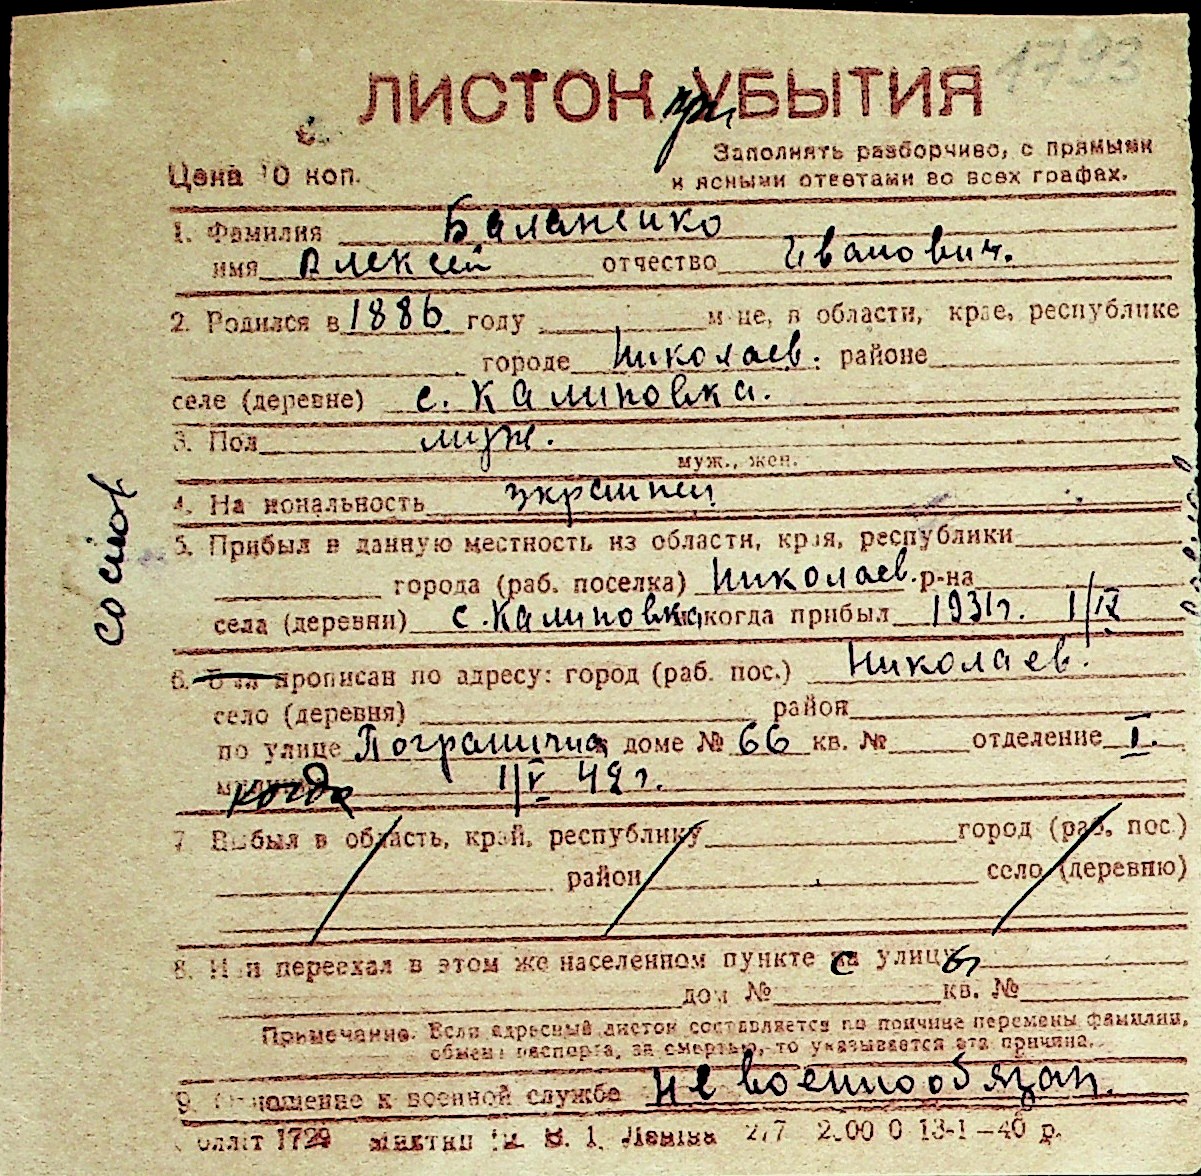 1793
ЛИСТОК при УБЫТИЯ
Цена 10 коп.
Заполнять разборчиво, с прямыми
и ясными ответами во всех графах.
1. Фамилия Баланенко
имя Алексей отчество Иванович.
2. Родился в 1886 году м-це, в области, крае, республике
городе Николаев. районе
селе (деревне) с. Калиновка.
3. Пол муж.
муж., жен.
4. Национальность украинец
5. Прибыл в данную местность из области, края, республики
города (раб. поселка) Николаев. р-на
села (деревни) с. Калиновка когда прибыл 1931г. 1/IX
6. Был прописан по адресу: город (раб. пос.) Николаев.
село (деревня) район
по улице Погранична доме № 66 кв. № отделение I.
когда 1/V 42 г.
7 Выбыл в область, край, республику город (раб. пос.)
район село (деревню)
8. Или переехал в этом же населенном пункте с улицы
дом № кв. №
Примечание. Если адресный листок составляется по причине перемены фамилии,
обмена паспорта, за смертью, то указывается эта причина.
9. Отношение к военной службе не военнообязан.
1729 Леніна 277 2.00 0 13-1-40 р.
состов